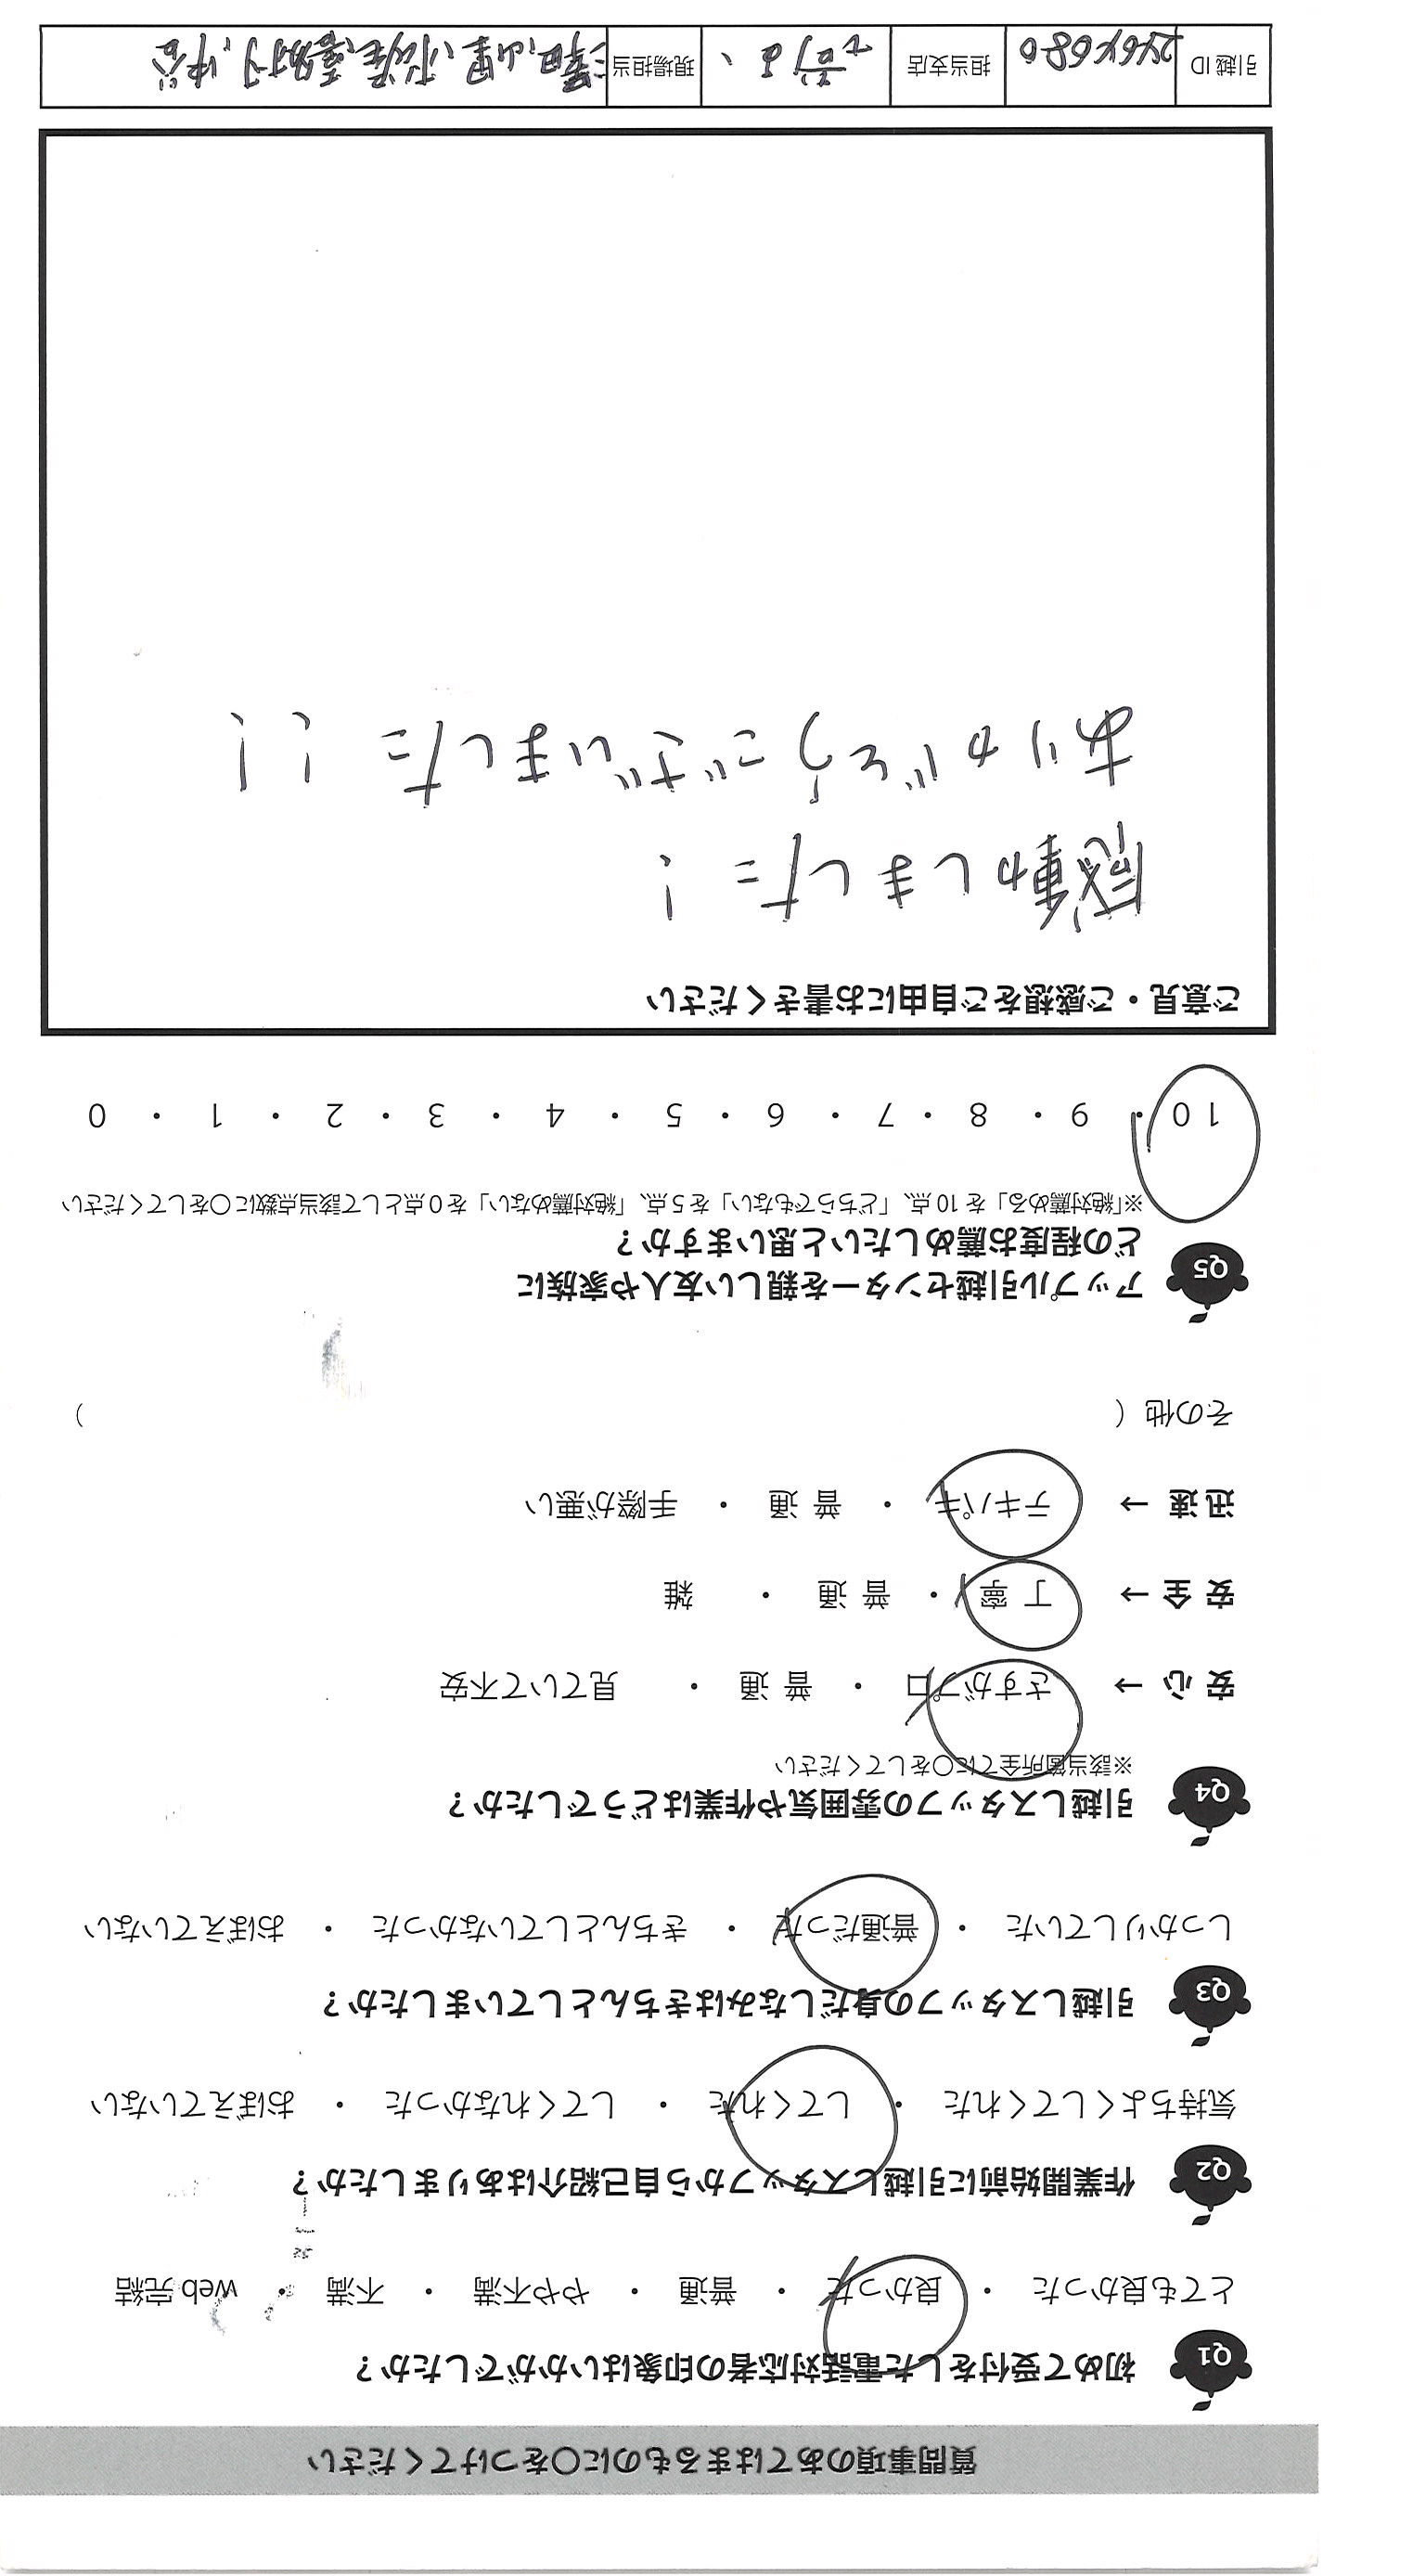 質問事項のあてはまるものに○をつけてください
Q1 初めて受付をした電話対応者の印象はいかがでしたか？
とても良かった ・ 良かった ・ 普通 ・ やや不満 ・ 不満 ・ web 完結
Q2 作業開始前に引越しスタッフから自己紹介はありましたか？
気持ちよくしてくれた ・ してくれた ・ してくれなかった ・ おぼえていない
Q3 引越しスタッフの身だしなみはきちんとしていましたか？
しっかりしていた ・ 普通だった ・ きちんとしていなかった ・ おぼえていない
Q4 引越しスタッフの雰囲気や作業はどうでしたか？
※該当箇所全てに○をしてください
安 心 → さすがプロ ・ 普 通 ・ 見ていて不安
安 全 → 丁 寧 ・ 普 通 ・ 雑
迅 速 → テキパキ ・ 普 通 ・ 手際が悪い
その他（ ）
Q5 アップル引越センターを親しい友人や家族に
どの程度お薦めしたいと思いますか？
※「絶対薦める」を 10 点、「どちらでもない」を 5 点、「絶対薦めない」を 0 点として該当点数に○をしてください
10 ・ 9 ・ 8 ・ 7 ・ 6 ・ 5 ・ 4 ・ 3 ・ 2 ・ 1 ・ 0
ご意見・ご感想をご自由にお書きください
感動しました！
ありがとうございました！！
引越 ID 担当支店 現場担当